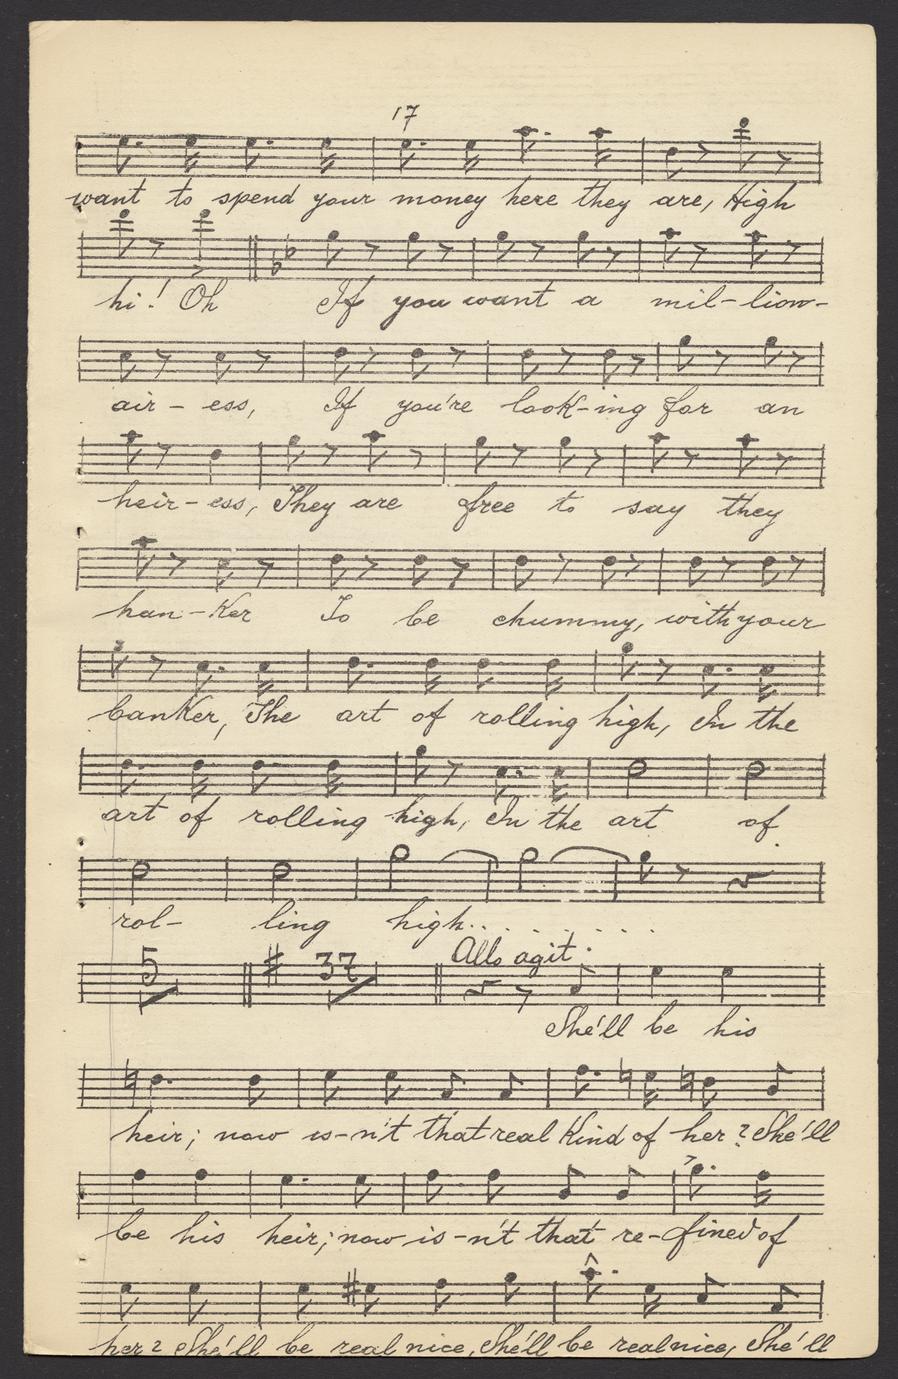 17
want to spend your money here they are, High
hi! Oh If you want a mil-lion-
air-ess, If you're look-ing for an
heir-ess, They are free to say they
han-Ker To be chummy, with your
banKer, The art of rolling high, In the
art of rolling high, In the art of
rol- ling high.. . . . . . .
5 37 Allo agit.
She'll be his
heir; now is-n't that real Kind of her? She'll
be his heir; now is-n't that re-fined of
her? She'll be real nice, She'll be real nice, She'll